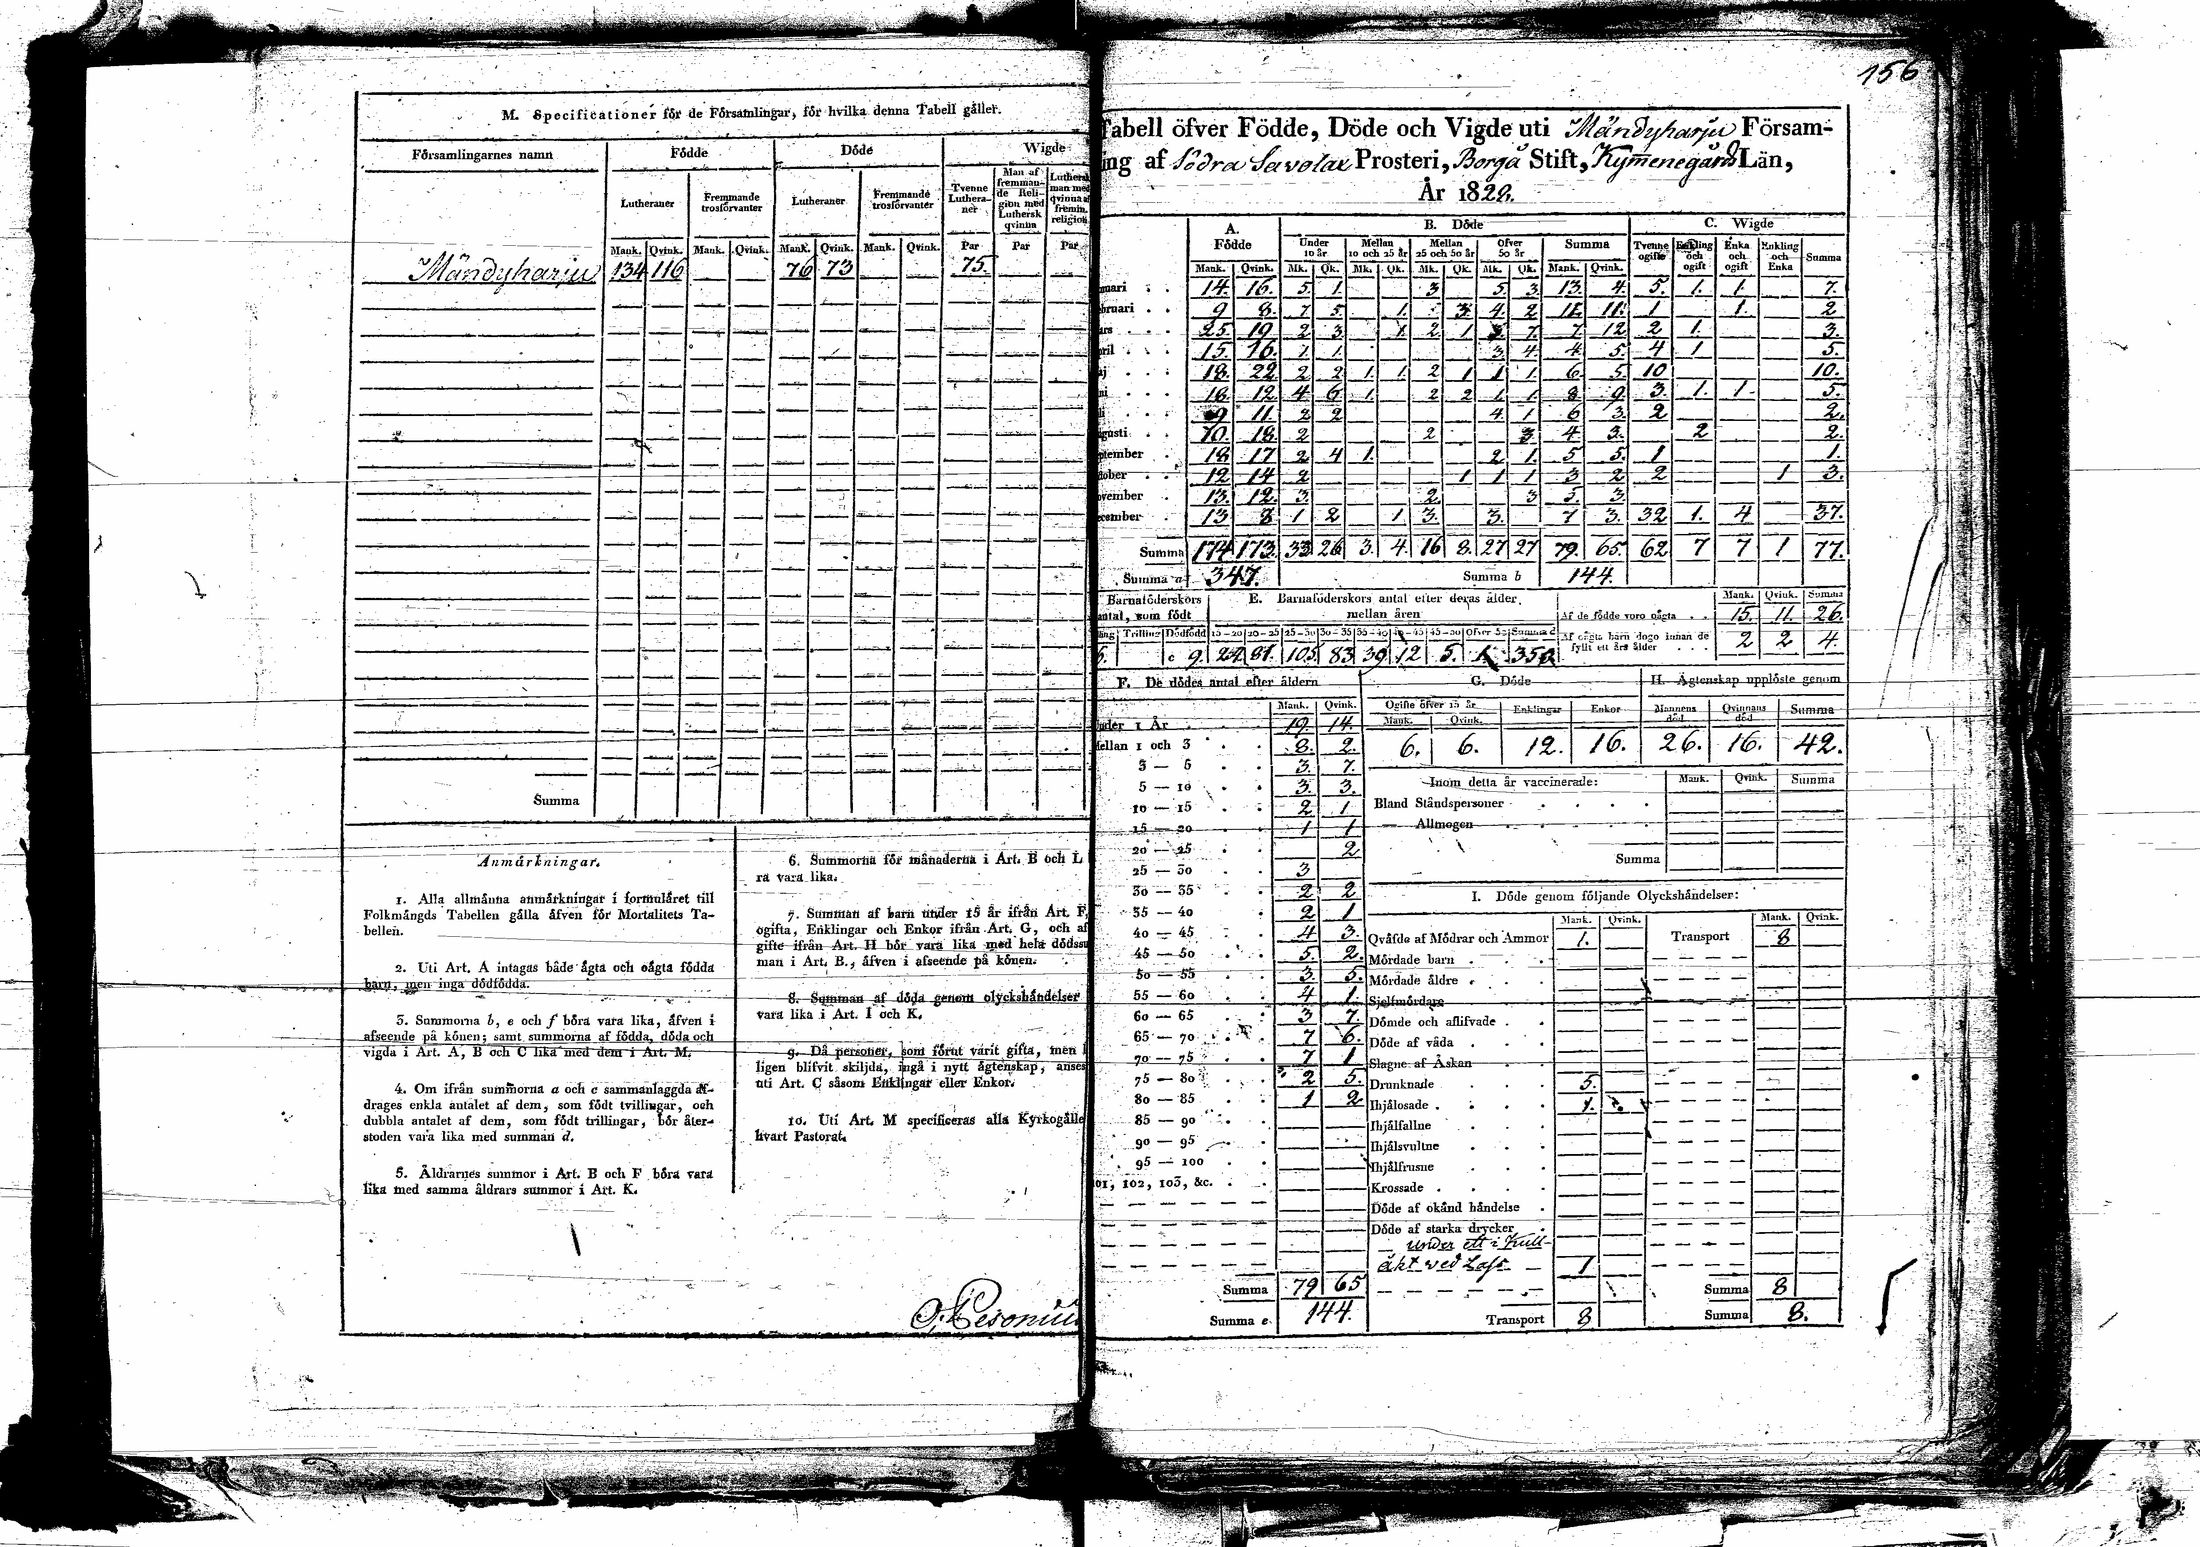 M. Specificationer för de Församlingar, för hvilka denna Tabell gäller.
Församlingarnes namn | Födde | Döde | Wigde
Lutheraner | Fremmande trosförvanter | Lutheraner | Fremmande trosförvanter | Tvenne Lutheraner | Man af fremmande Religion med Luthersk qvinna | Luthersk man med qvinna af fremm. religion
Mank. | Qvink. | Mank. | Qvink. | Mank. | Qvink. | Mank. | Qvink. | Par | Par | Par
Mändyharju | 134 | 116 | 76 | 73 | 75.
Summa
Anmärkningar.
1. Alla allmänna anmärkningar i formuläret till
Folkmängds Tabellen gälla äfven för Mortalitets Ta-
bellen.
2. Uti Art. A intagas både ägta och oägta födda
barn, men inga dödfödda.
3. Summorna b, e och f böra vara lika, äfven i
afseende på könen; samt summorna af födda, döda och
vigda i Art. A, B och C lika med dem i Art. M.
4. Om ifrån summorna a och c sammanlaggda af-
drages enkla antalet af dem, som födt tvillingar, och
dubbla antalet af dem, som födt trillingar, bör åter-
stoden vara lika med summan d.
5. Åldrarnes summor i Art. B och F böra vara
lika med samma åldrars summor i Art. K.
6. Summorna för månaderna i Art. B och L
ra vara lika.
7. Summan af barn under 15 år ifrån Art. F,
ogifta, Enklingar och Enkor ifrån Art. G, och af
gifte ifrån Art. H bör vara lika med hela dödssu
man i Art. B., äfven i afseende på könen.
8. Summan af döda genom olyckshändelser
vara lika i Art. I och K.
9. Då personer, som förut varit gifta, men
ligen blifvit skiljda, ingå i nytt ägtenskap, anses
uti Art. C såsom Enklingar eller Enkor.
10. Uti Art. M specificeras alla Kyrkogälle
hvart Pastorat.
156
Tabell öfver Födde, Döde och Vigde uti Mändyharju Försam-
ing af Södra Savolax Prosteri, Borgå Stift, Kymenegårds Län,
År 1828.
A. Födde | B. Döde | C. Wigde
Under 10 år | Mellan 10 och 25 år | Mellan 25 och 50 år | Öfver 50 år | Summa | Tvenne ogifte | Enkling och ogift | Enka och ogift | Enkling och Enka | Summa
Mank. | Qvink. | Mk. | Qk. | Mk. | Qk. | Mk. | Qk. | Mk. | Qk. | Mank. | Qvink.
nuari | 14. | 16. | 5. | 1. | 3 | 5. | 3. | 13. | 4. | 5. | 1. | 1. | 7.
bruari | 9 | 8. | 7 | 5. | 1. | 3 | 4. | 2 | 11. | 1 | 1. | 2
ars | 25. | 19. | 2 | 3 | 1. | 2 | 1 | 7. | 7. | 12 | 2 | 1. | 3.
pril | 15. | 16. | 1. | 1. | 3 | 4. | 4. | 5. | 4 | 1 | 5.
aj | 18. | 22. | 2 | 2 | 1. | 1. | 2 | 1 | 1 | 1. | 6 | 5. | 10 | 10.
ni | 18. | 12. | 4 | 6 | 1. | 2 | 2 | 1 | 1. | 8 | 9. | 3. | 1. | 1. | 5.
li | 9 | 11. | 2 | 2 | 4. | 1 | 6 | 3. | 2 | 2.
gusti | 10. | 18. | 2 | 2 | 3. | 4. | 3. | 2 | 2.
ptember | 18. | 17 | 2 | 4 | 1. | 2 | 1. | 5 | 5. | 1 | 1.
tober | 12 | 14 | 2 | 1 | 1 | 1 | 3 | 2 | 2 | 1 | 3.
ovember | 13. | 12. | 3. | 2. | 3 | 5. | 3.
ecember | 13 | 8. | 1 | 2 | 1. | 3. | 3. | 7 | 3. | 32 | 1. | 4 | 37.
Summa | 174 | 173. | 33 | 26 | 3. | 4. | 16 | 8. | 27 | 27 | 79. | 65. | 62 | 7 | 7 | 1 | 77.
Summa a | 347. | Summa b | 144.
Barnaföderskors antal, som födt | E. Barnaföderskors antal efter deras ålder, mellan åren | Mank. | Qvink. | Summa
Trilling | Dödfödd | 15-20 | 20-25 | 25-30 | 30-35 | 35-40 | 40-45 | 45-50 | Öfver 50 | Summa d
Af de födde voro oägta | 15. | 11. | 26.
Af oägta barn dogo innan de fyllt ett års ålder | 2 | 2 | 4.
c 9. | 105. | 83 | 39 | 12 | 5.
F. De dödes antal efter åldern | G. Döde | H. Ägtenskap upplöste genom
Mank. | Qvink. | Ogifte öfver 15 år | Mank. | Qvink. | Enklingar | Enkor | Mannens död | Qvinnans död | Summa
6. | 6. | 12. | 16. | 26. | 16. | 42.
Under 1 År | 19. | 14.
Mellan 1 och 3 | 8. | 2.
3 — 5 | 3. | 7.
5 — 10 | 3. | 3.
10 — 15 | 2 | 1
15 — 20 | 1 | 1
20 — 25 | 2
25 — 30 | 3
30 — 35 | 2 | 2
35 — 40 | 2 | 1
40 — 45 | 4 | 3.
45 — 50 | 5. | 2.
50 — 55 | 3. | 5.
55 — 60 | 4 | 1.
60 — 65 | 3 | 7.
65 — 70 | 7 | 6.
70 — 75 | 7 | 1
75 — 80 | 2 | 5.
80 — 85 | 1 | 2
85 — 90
90 — 95
95 — 100
101, 102, 103, &c.
Summa | 79 | 65
Summa e | 144.
Inom detta år vaccinerade: | Mank. | Qvink. | Summa
Bland Ståndspersoner
— Allmogen
Summa
I. Döde genom följande Olyckshändelser:
Mank. | Qvink. | Mank. | Qvink.
Qväfde af Mödrar och Ammor | 1. | Transport | 8
Mördade barn
Mördade äldre
Sjelfmördare
Dömde och aflifvade
Döde af våda
Slagne af Åskan
Drunknade | 5.
Ihjälosade | 1.
Ihjälfallne
Ihjälsvultne
Ihjälfrusne
Krossade
Döde af okänd händelse
Döde af starka drycker
under ett i Kull-
åkt ved Lass | 1
Summa | 8
Transport | 8 | Summa | 8.